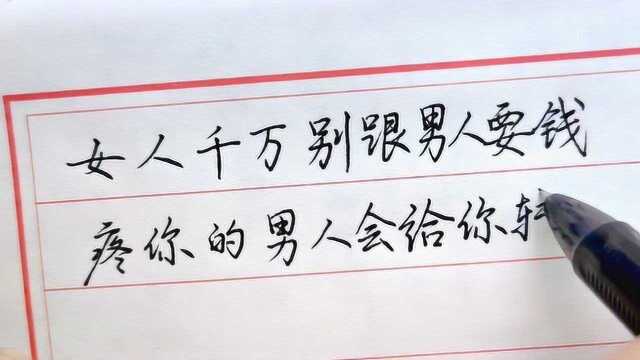 女人千万别跟男人要钱
疼你的男人会给你